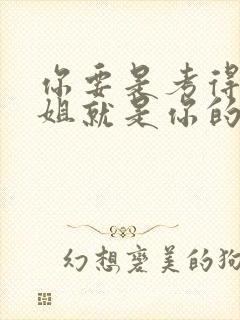 你要是考得
姐就是你的
幻想变美的狗